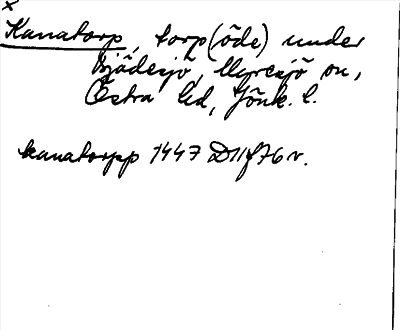 x
Kanatorp, torp (öde) under
Bjädesjö, Myresjö sn,
Östra hd, Jönk. l.
kanatorpp 1447 D11 f 76 v.